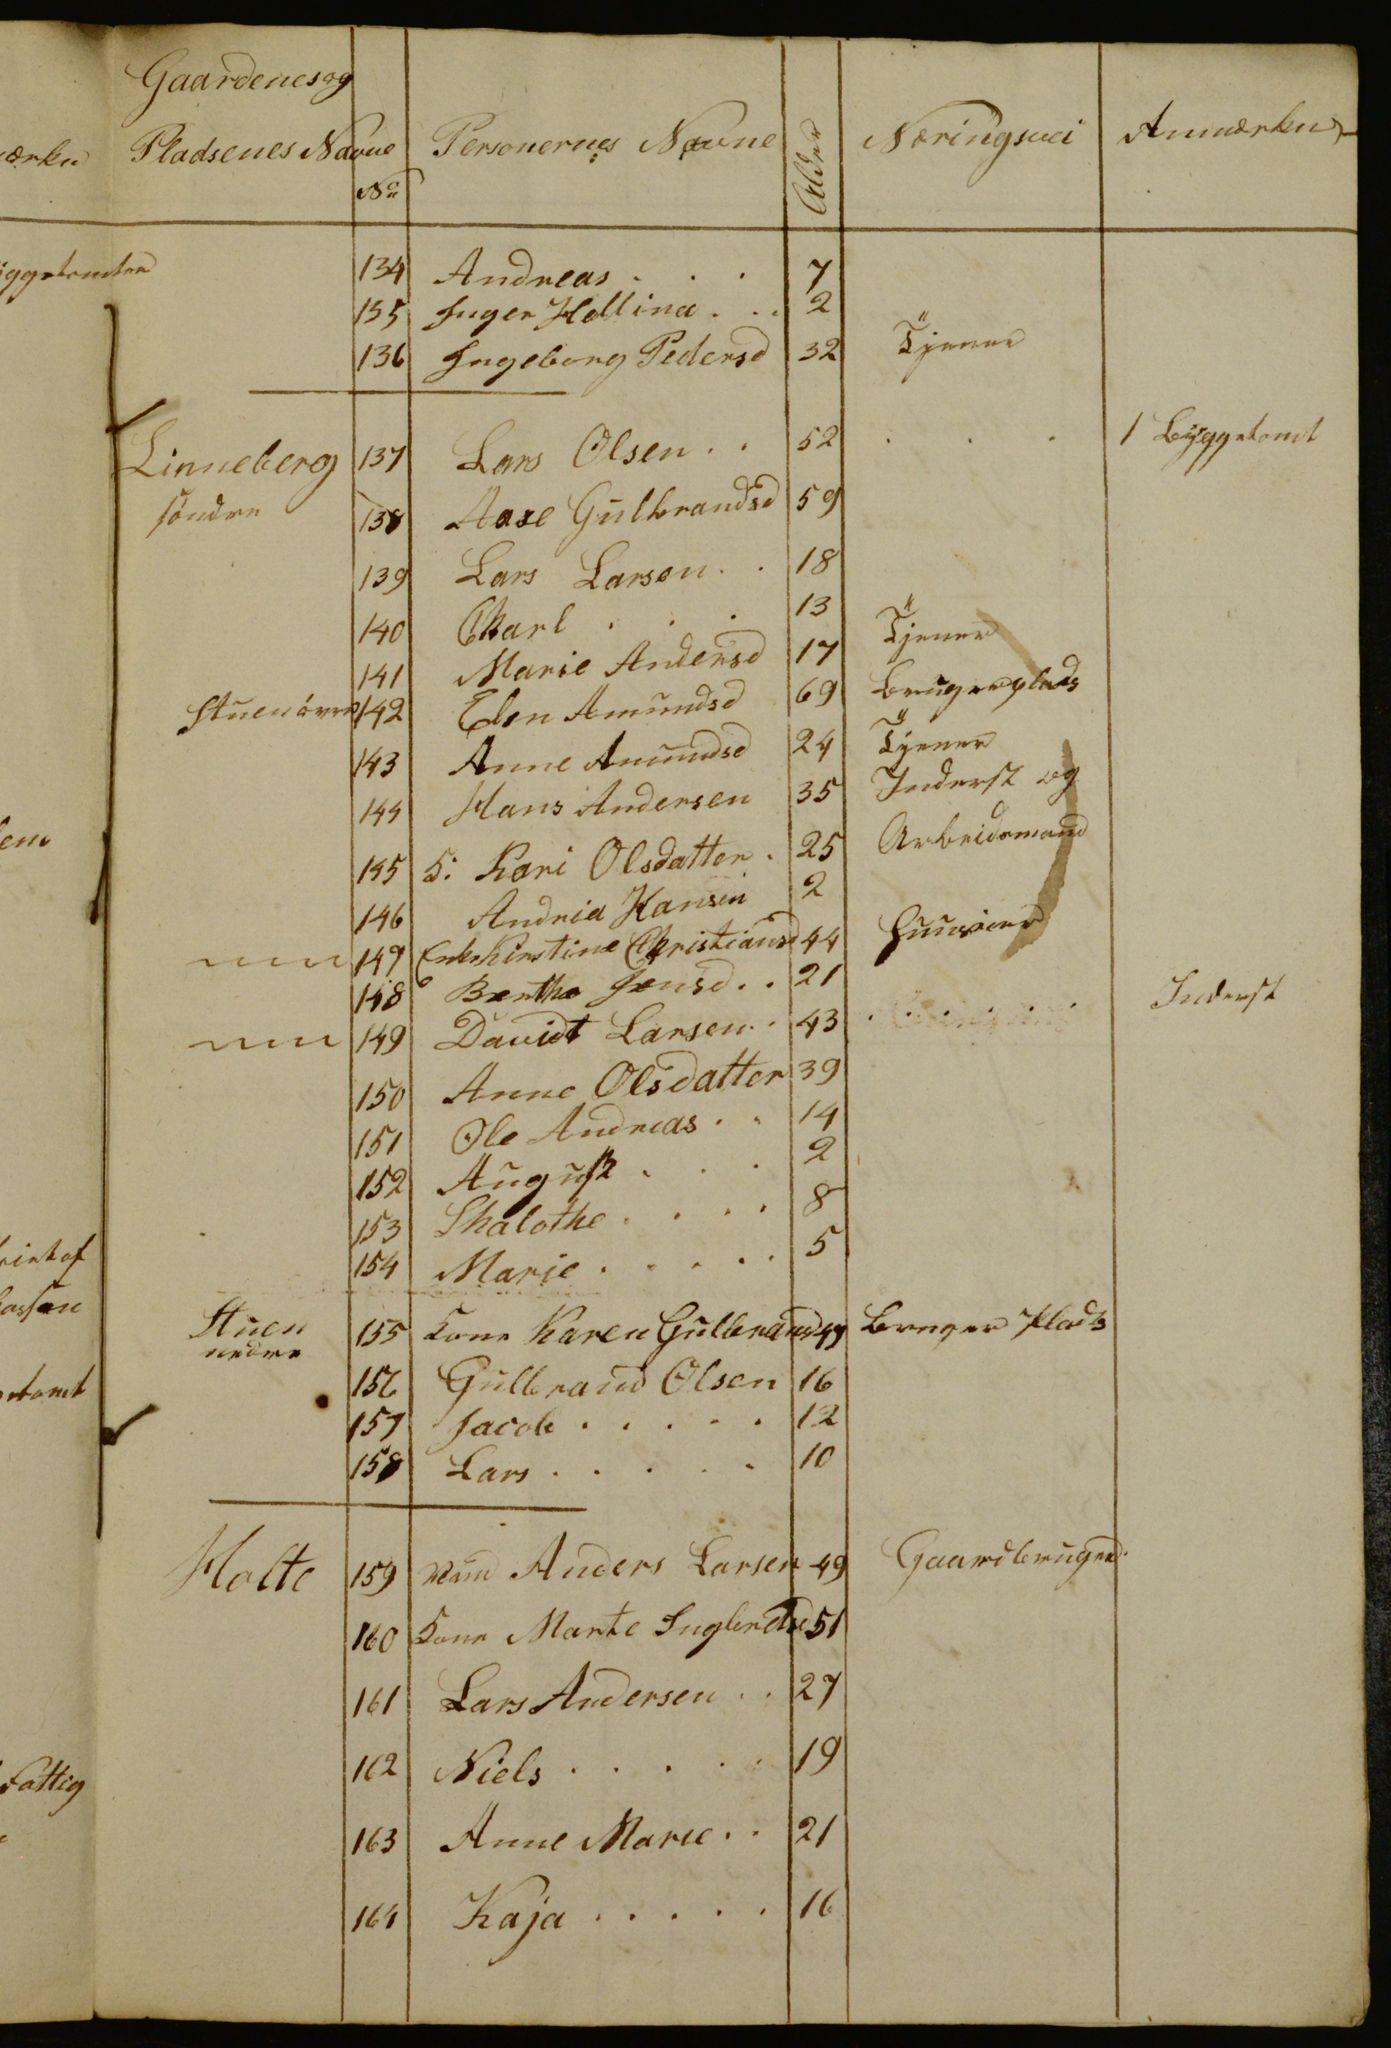 Gaardenes og
Pladsenes Navne No Personernes Navne Alder Næringsvei Anmærkn
ærkn
yggetomter
134 Andreas . . . 7
135 Inger Hellina . . . 2
136 Ingeborg Pedersd 32 Tjener
Linneberg 137 Lars Olsen . . 52 . . . 1 Byggetomt
söndre 138 Aase Gulbrandsd 59
139 Lars Larsen . . 18
140 Charl . . . 13
141 Marie Andersd 17 Tjener
Stuen övre 142 Elen Amundsd 69 Bruger plads
143 Anne Amundsd 24 Tjener
144 Hans Andersen 35 Inderst og
145 K: Kari Olsdatter . 25 Arbeidsmand
146 Andria Hansen 2
147 Enke Kirstine Christiansd 44
148 Berthe Jensd . . 21
149 Davidt Larsen . . 43 . . . . . Inderst
150 Anne Olsdatter 39
151 Ole Andreas . . 14
152 August . . . 2
153 Shalothe . . . . 8
154 Marie . . . . . 5
Stuen 155 Kone Karen Gulbrandsd 49 Bruger Plads
nedre
156 Gulbrand Olsen 16
157 Jacob . . . . . 12
158 Lars . . . . . 10
Holte 159 Mand Anders Larsen 49 Gaardbruger
160 Kone Marte Inglbretsd 51
161 Lars Andersen . . 27
162 Niels . . . . . 19
163 Anne Marie . . 21
164 Kaja . . . . . 16
tomt
Fattig